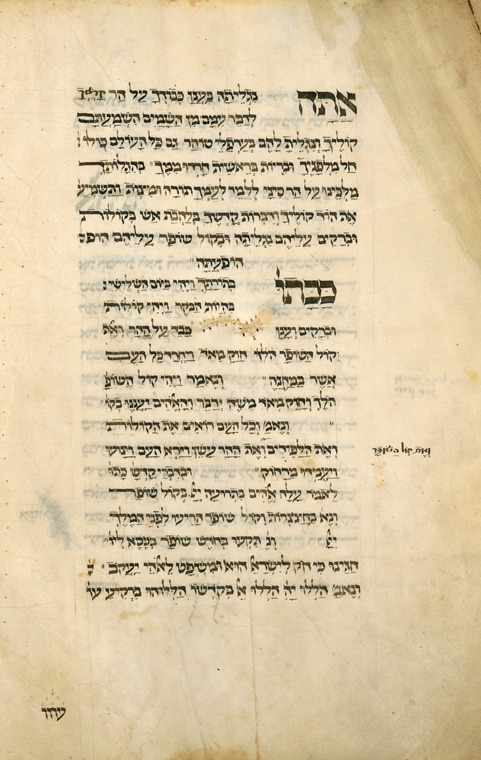 אתה נגליתה בענן כבודך על הר
לדבר עמם מן השמים השמעתם
קוליך ונגליתה להם בערפלי טוהר גם כל העולם כולו
חל מלפניך ובריות בראשית חרדו ממך בהגלותך
מלכינו על הר סיני ללמד לעמך תורה ומצות ותשמיע׳
את הוד קוליך ודברות קדשך מלהבת אש בקולות
וברקים עליהם נגליתה ובקול שופר עליהם הופ
הופעתה
ככתו׳ בתורתך ויהי ביום השלישי
בהיות הבקר ויהי קולות
וברקים וענן כבד על ההר
וקול השופר חזק מאד ויחרד כל העם
אשר במחנה ונאמר ויהי קול השופ׳
הולך וחזק מאד משה ידבר והאלהים יעננו בקו׳
ונאמ׳ וכל העם רואים את הקולות
ואת הלפידים ואת ההר עשן וירא העם וינועו
ויעמדו מרחוק ובדברי קדשך כתו׳
לאמר עלה אלהים בתרועה יי׳ בקול שופר
ונא׳ בחצצרות וקול שופר הריעו לפני המלך
יי׳ ונ׳ תקעו בחדש שופר בכסא ליו׳
חגינו כי חק לישראל הוא ומשפט לאלהי יעקב
ונאמ׳ הללו יה הללו אל בקדשו הללוהו ברקיע עו׳
ואת קול השופר
עוזו